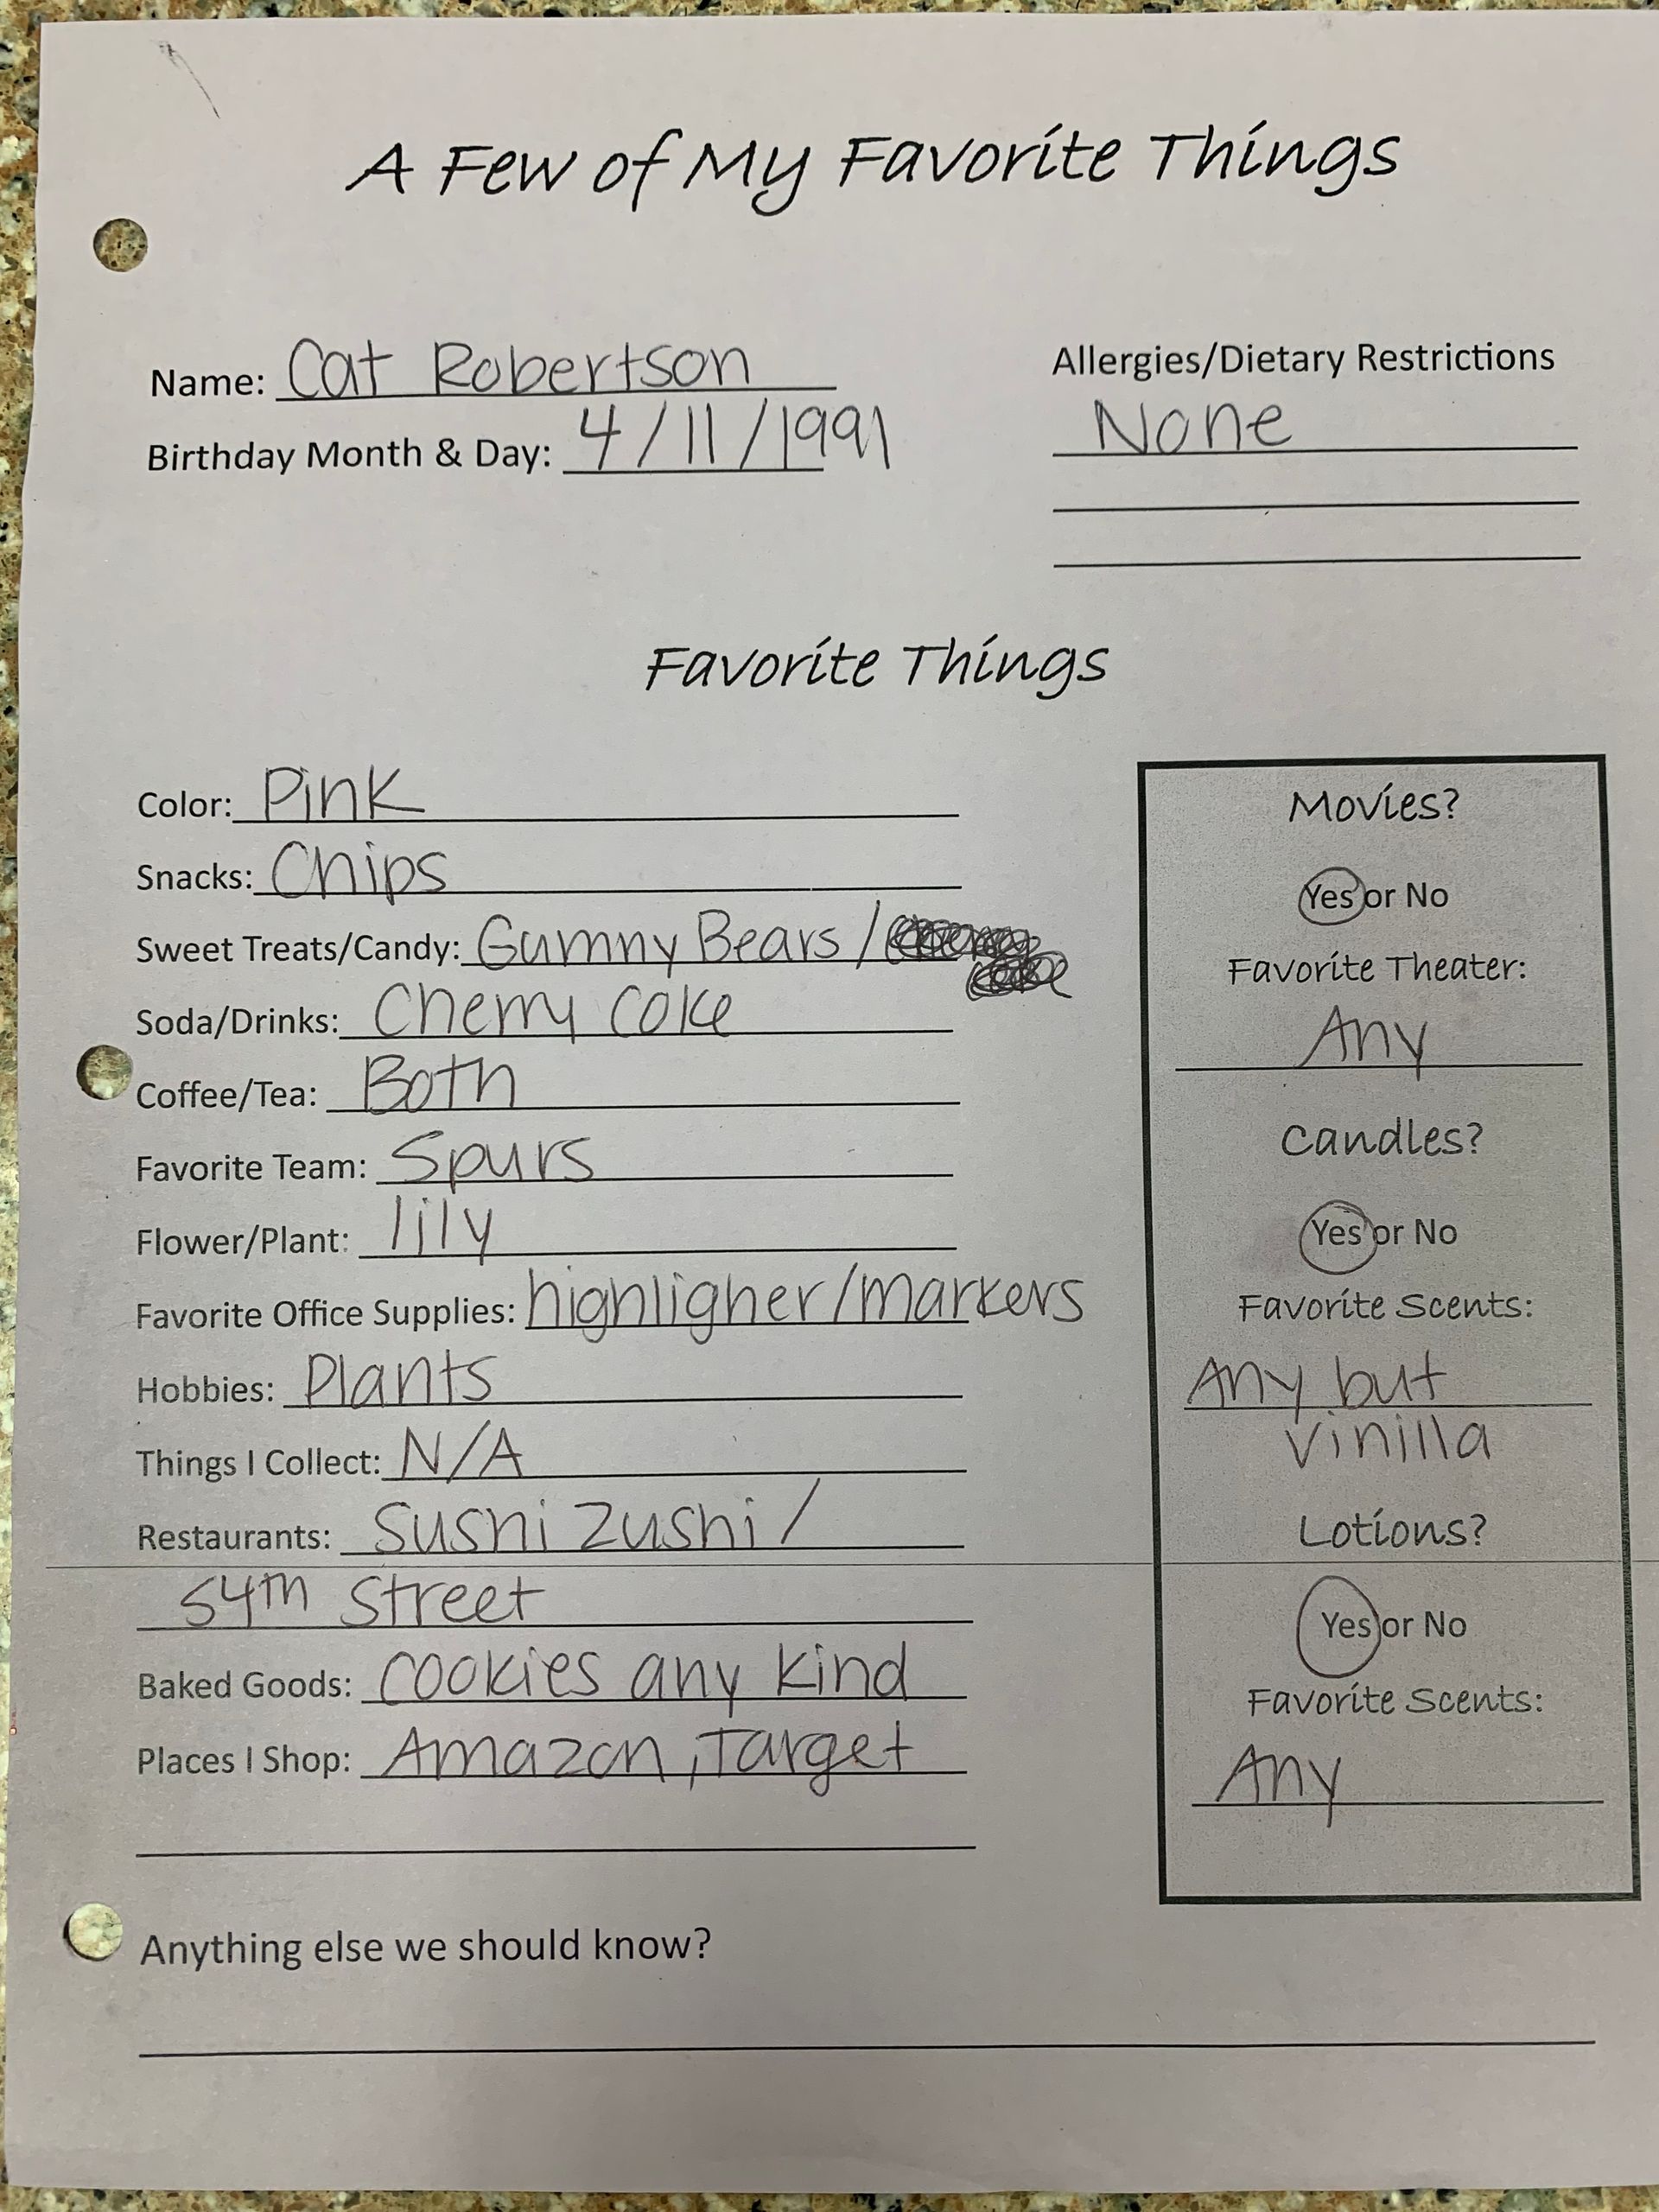 A Few of My Favorite Things
Name: Cat Robertson
Birthday Month & Day: 4/11/1991
Allergies/Dietary Restrictions
None
Favorite Things
Color: Pink
Snacks: Chips
Sweet Treats/Candy: Gummy Bears /
Soda/Drinks: Cherry Coke
Coffee/Tea: Both
Favorite Team: Spurs
Flower/Plant: lily
Favorite Office Supplies: highligher/markers
Hobbies: Plants
Things I Collect: N/A
Restaurants: Sushi Zushi /
54th Street
Baked Goods: cookies any kind
Places I Shop: Amazon, Target
Movies?
Yes or No
Favorite Theater:
Any
Candles?
Yes or No
Favorite Scents:
Any but
vinilla
Lotions?
Yes or No
Favorite Scents:
Any
Anything else we should know?